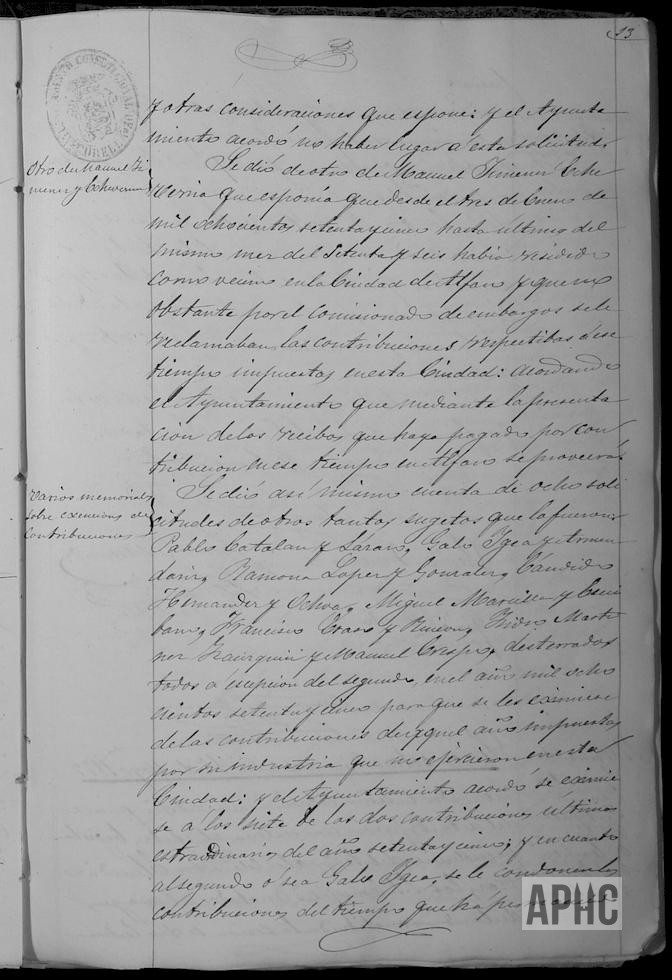 13
y otras consideraciones que espone: y el Ayunta
miento acordó no haber lugar a esta solicitud.
Otro de Manuel Ji
menez y Echeverria
Se dió de otro de Manuel Jimenez Eche
verria que esponia que desde el tres de Enero de
mil ochocientos setenta y cinco hasta ultimo del
mismo mes del setenta y seis habia residido
como vecino en la Ciudad de Alfaro y que no
obstante por el comisionado de embargos se le
reclamaban las contribuciones respectibas á ese
tiempo impuestas en esta Ciudad: acordando
el Ayuntamiento que mediante la presenta
cion de los recibos que haya pagado por con
tribucion en ese tiempo en Alfaro se proveerá.
Varios memoriales
sobre exencions de
contribuciones
Se dió asi mismo cuenta de ocho soli
citudes de otros tantos sugetos que lo fueron:
Pablo Catalan y Lázaro, Galo Igea y Armen
dariz, Ramona Lopez y Gonzalez, Cándido
Hernandez y Ochoa, Miguel Marcilla y Escri
bano, Francisco y Rincon, Isidro Marti
nez y Manuel Crespo, desterrados
todos a escepcion del segundo, en el año mil ocho
cientos setenta y cinco para que se les eximiese
de las contribuciones de aquel año impuestas
por su industria que no ejercieron en esta
Ciudad: y el Ayuntamiento acordó se eximie
se á los siete de las dos contribuciones últimas
estraordinarias del año setenta y cinco; y en cuanto
al segundo ó sea Galo Igea, se le condonen las
contribuciones del tiempo que ha
APHC